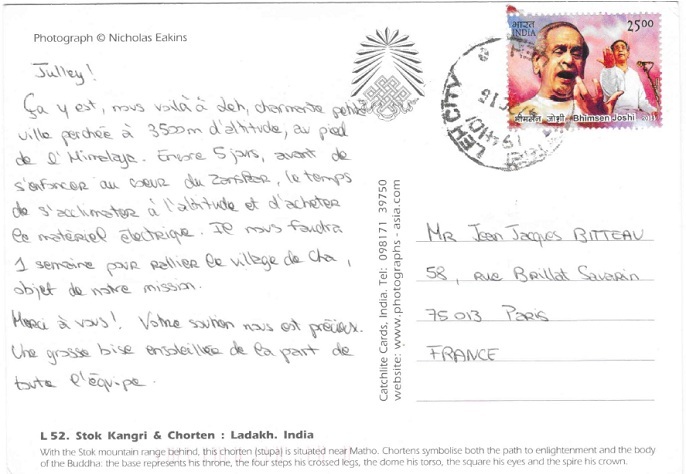 Photograph © Nicholas Eakins
Julley!
Ça y est, nous voilà à Leh, charmante petite
ville perchée à 3500m d'altitude, au pied
de l'Himalaya. Encore 5 jours, avant de
s'enfoncer au coeur du Zanskar, le temps
de s'acclimater à l'altitude et d'acheter
le matériel électrique. Il nous faudra
1 semaine pour rallier le village de Cha,
objet de notre mission.
Merci à vous! Votre soutien nous est précieux.
Une grosse bise ensoleillée de la part de
toute l'équipe.
L 52. Stok Kangri & Chorten : Ladakh. India
With the Stok mountain range behind, this chorten (stupa) is situated near Matho. Chortens symbolise both the path to enlightenment and the body
of the Buddha: the base represents his throne, the four steps his crossed legs, the dome his torso, the square his eyes and the spire his crown.
Catchlite Cards, India. Tel: 098171 39750
website: www.photographs-asia.com
भारत 2500
INDIA
भीमसेन जोशी Bhimsen Joshi
LEH CITY
MR Jean Jacques BITTEAU
58, rue Brillat Savarin
75013 Paris
FRANCE